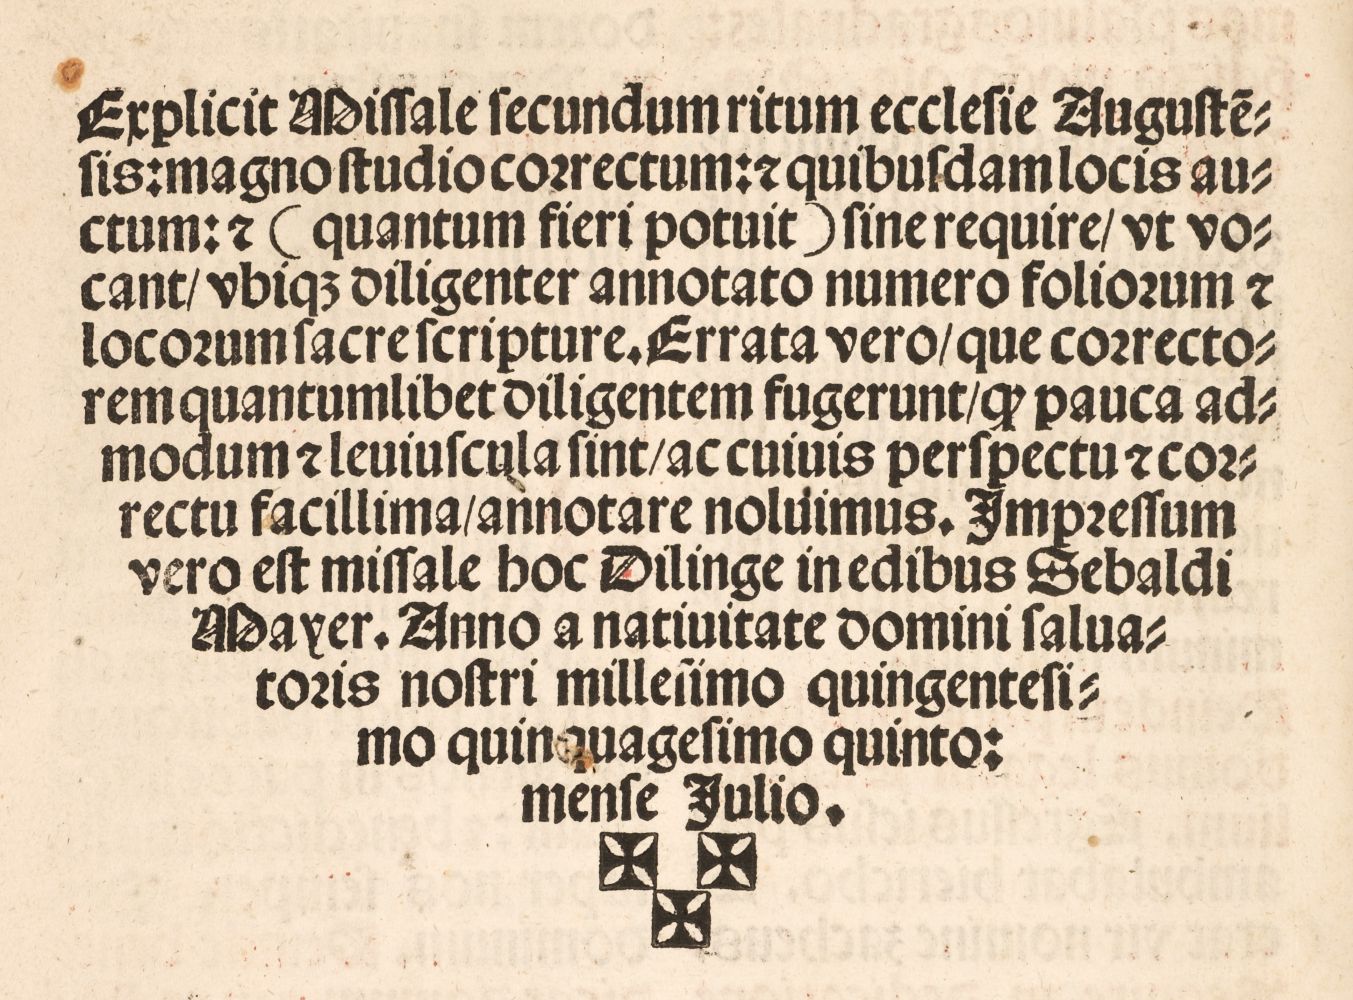 Explicit Missale secundum ritum ecclesie Augustē⸗
sis: magno studio correctum: ⁊ quibusdam locis au⸗
ctum: ⁊ ( quantum fieri potuit ) sine require/ vt vo⸗
cant/ vbiqꝫ diligenter annotato numero foliorum ⁊
locorum sacre scripture. Errata vero/ que correcto⸗
rem quantumlibet diligentem fugerunt/ ꝙ pauca ad⸗
modum ⁊ leuiuscula sint/ ac cuiuis perspectu ⁊ cor⸗
rectu facillima/ annotare noluimus. Impressum
vero est missale hoc Dilinge in edibus Sebaldi
Mayer. Anno a natiuitate domini salua⸗
toris nostri millesimo quingentesi⸗
mo quinquagesimo quinto:
mense Julio.